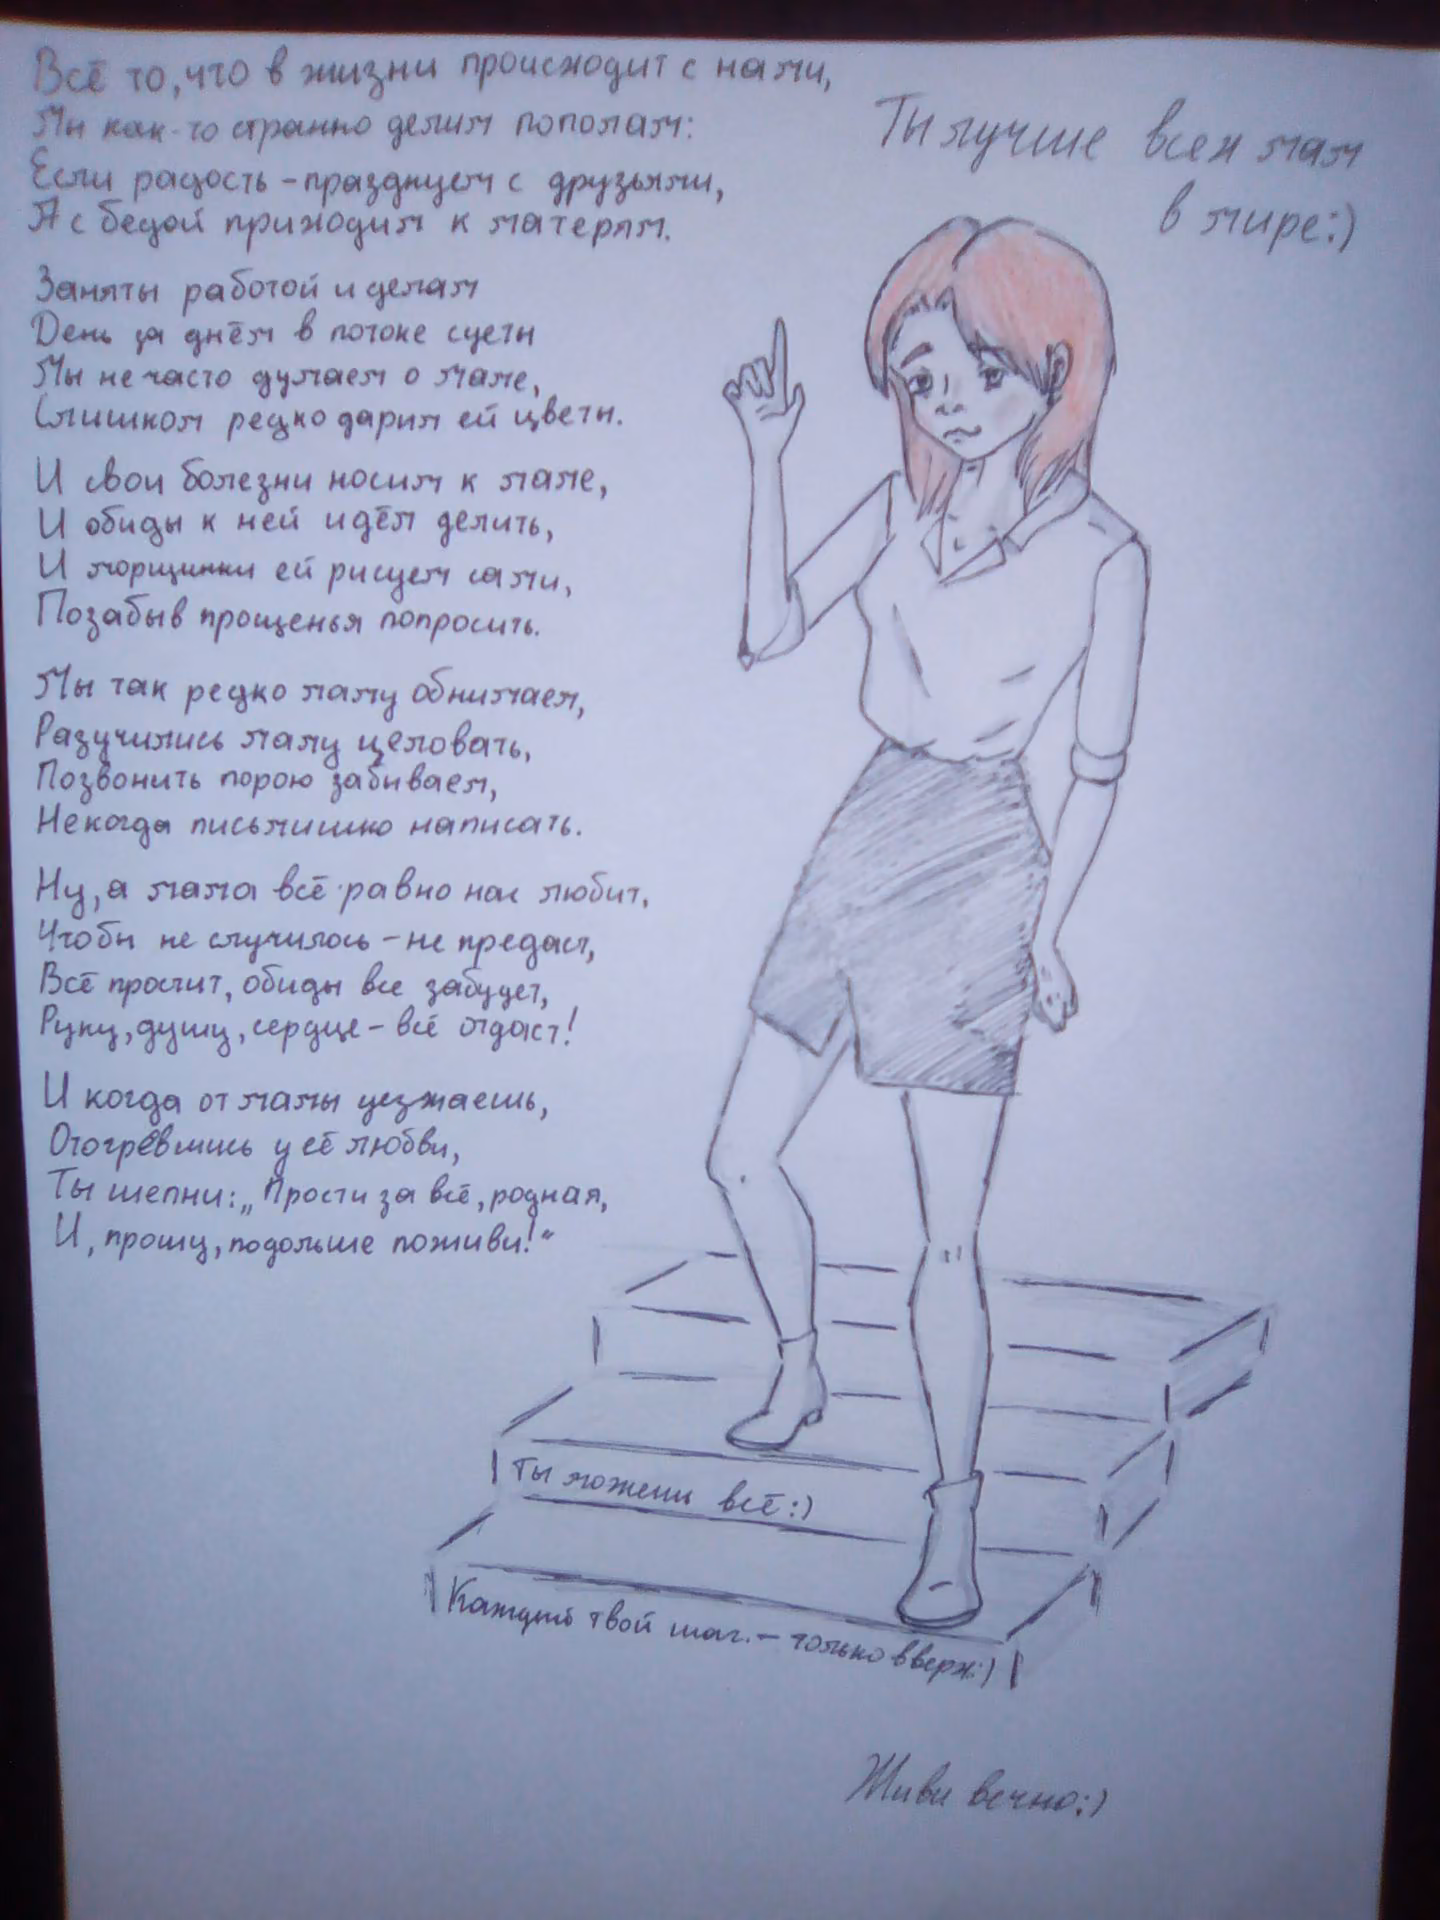 Всё то, что в жизни происходит с нами,
Мы как-то странно делим пополам:
Если радость - празднуем с друзьями,
А с бедой приходим к матерям.
Заняты работой и делам
День за днём в потоке суеты
Мы не часто думаем о маме,
Слишком редко дарим ей цветы.
И свои болезни носим к маме,
И обиды к ней идём делить,
И морщинки ей рисуем сами,
Позабыв прощенья попросить.
Мы так редко маму обнимаем,
Разучились маму целовать,
Позвонить порою забываем,
Некогда письмишко написать.
Ну, а мама всё равно нас любит,
Чтобы не случилось - не предаст,
Всё простит, обиды все забудет,
Руку, душу, сердце - всё отдаст!
И когда от мамы уезжаешь,
Отогревшись у её любви,
Ты шепни: „Прости за всё, родная,
И, прошу, подольше поживи!“
Ты лучше всех мам
в мире:)
Ты можешь всё:)
Каждый твой шаг. - только вверх:)
Живи вечно:)